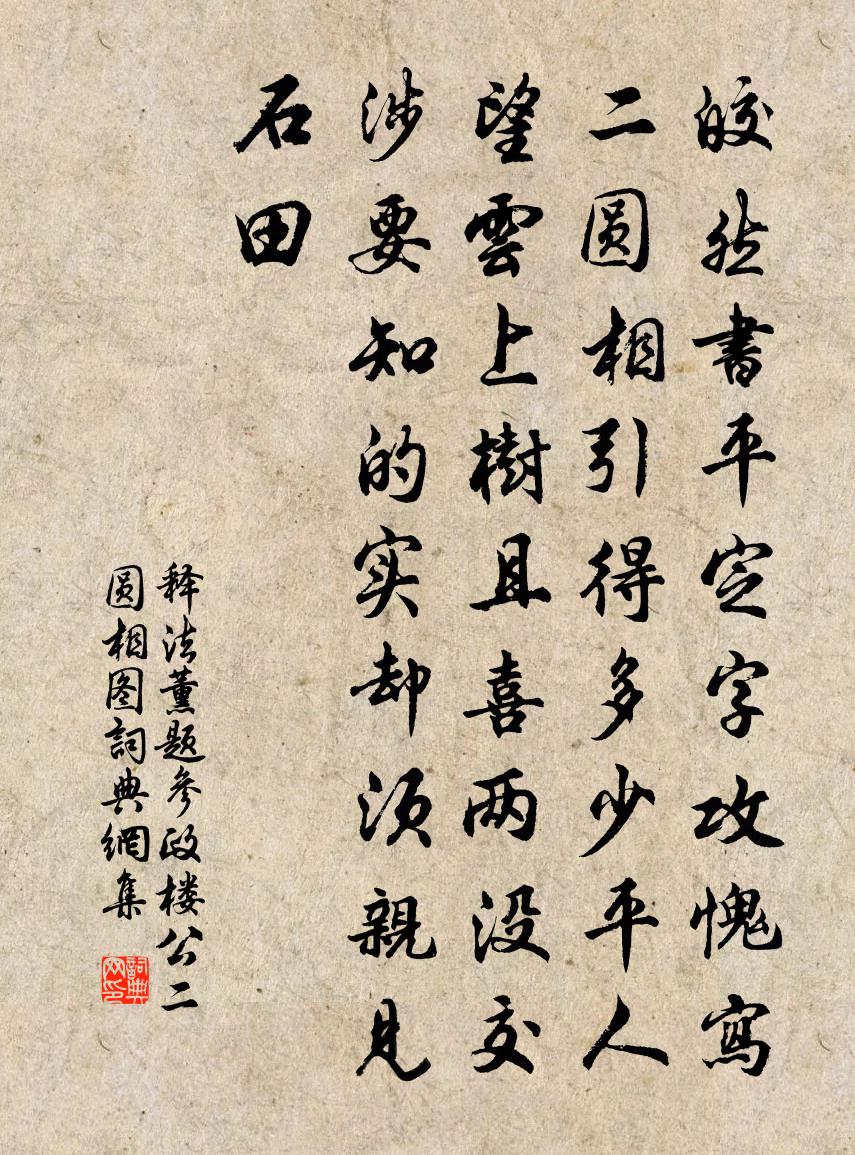 皎然書平定字攻愧寫
二圆相引得多少平人
望雲上樹且喜两没交
涉要知的实却须親見
石田
释法薰题参政楼公二
圆相图詞典網集
詞典网印